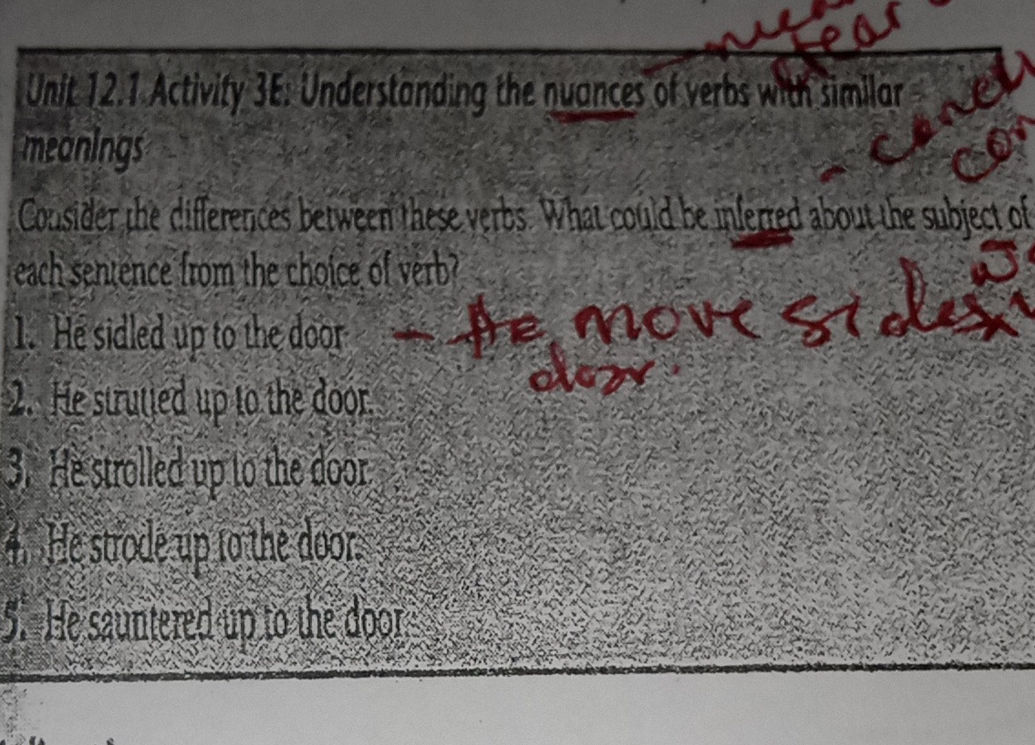 Unit 12.1 Activity 3E: Understanding the nuances of verbs with similar
meanings
Consider the differences between these verbs. What could be inferred about the subject of
each sentence from the choice of verb?
1. He sidled up to the door - He move sides
door.
2. He strutted up to the door.
3. He strolled up to the door
4. He strode up to the door.
5. He sauntered up to the door.